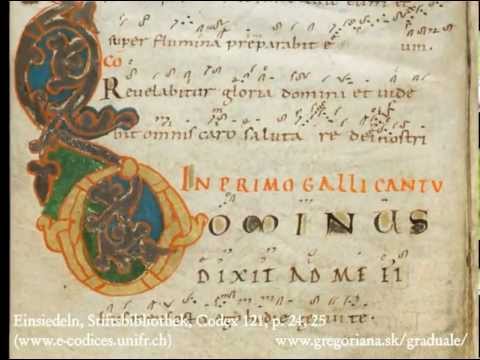 super flumina preparabit e um.
CO
Revelabitur gloria domini et vide
bit omnis caro saluta re dei nostri
IN PRIMO GALLI CANTV
DOMINUS
DIXIT AD ME
Einsiedeln, Stiftsbibliothek, Codex 121, p. 24, 25
(www.e-codices.unifr.ch) www.gregoriana.sk/graduale/